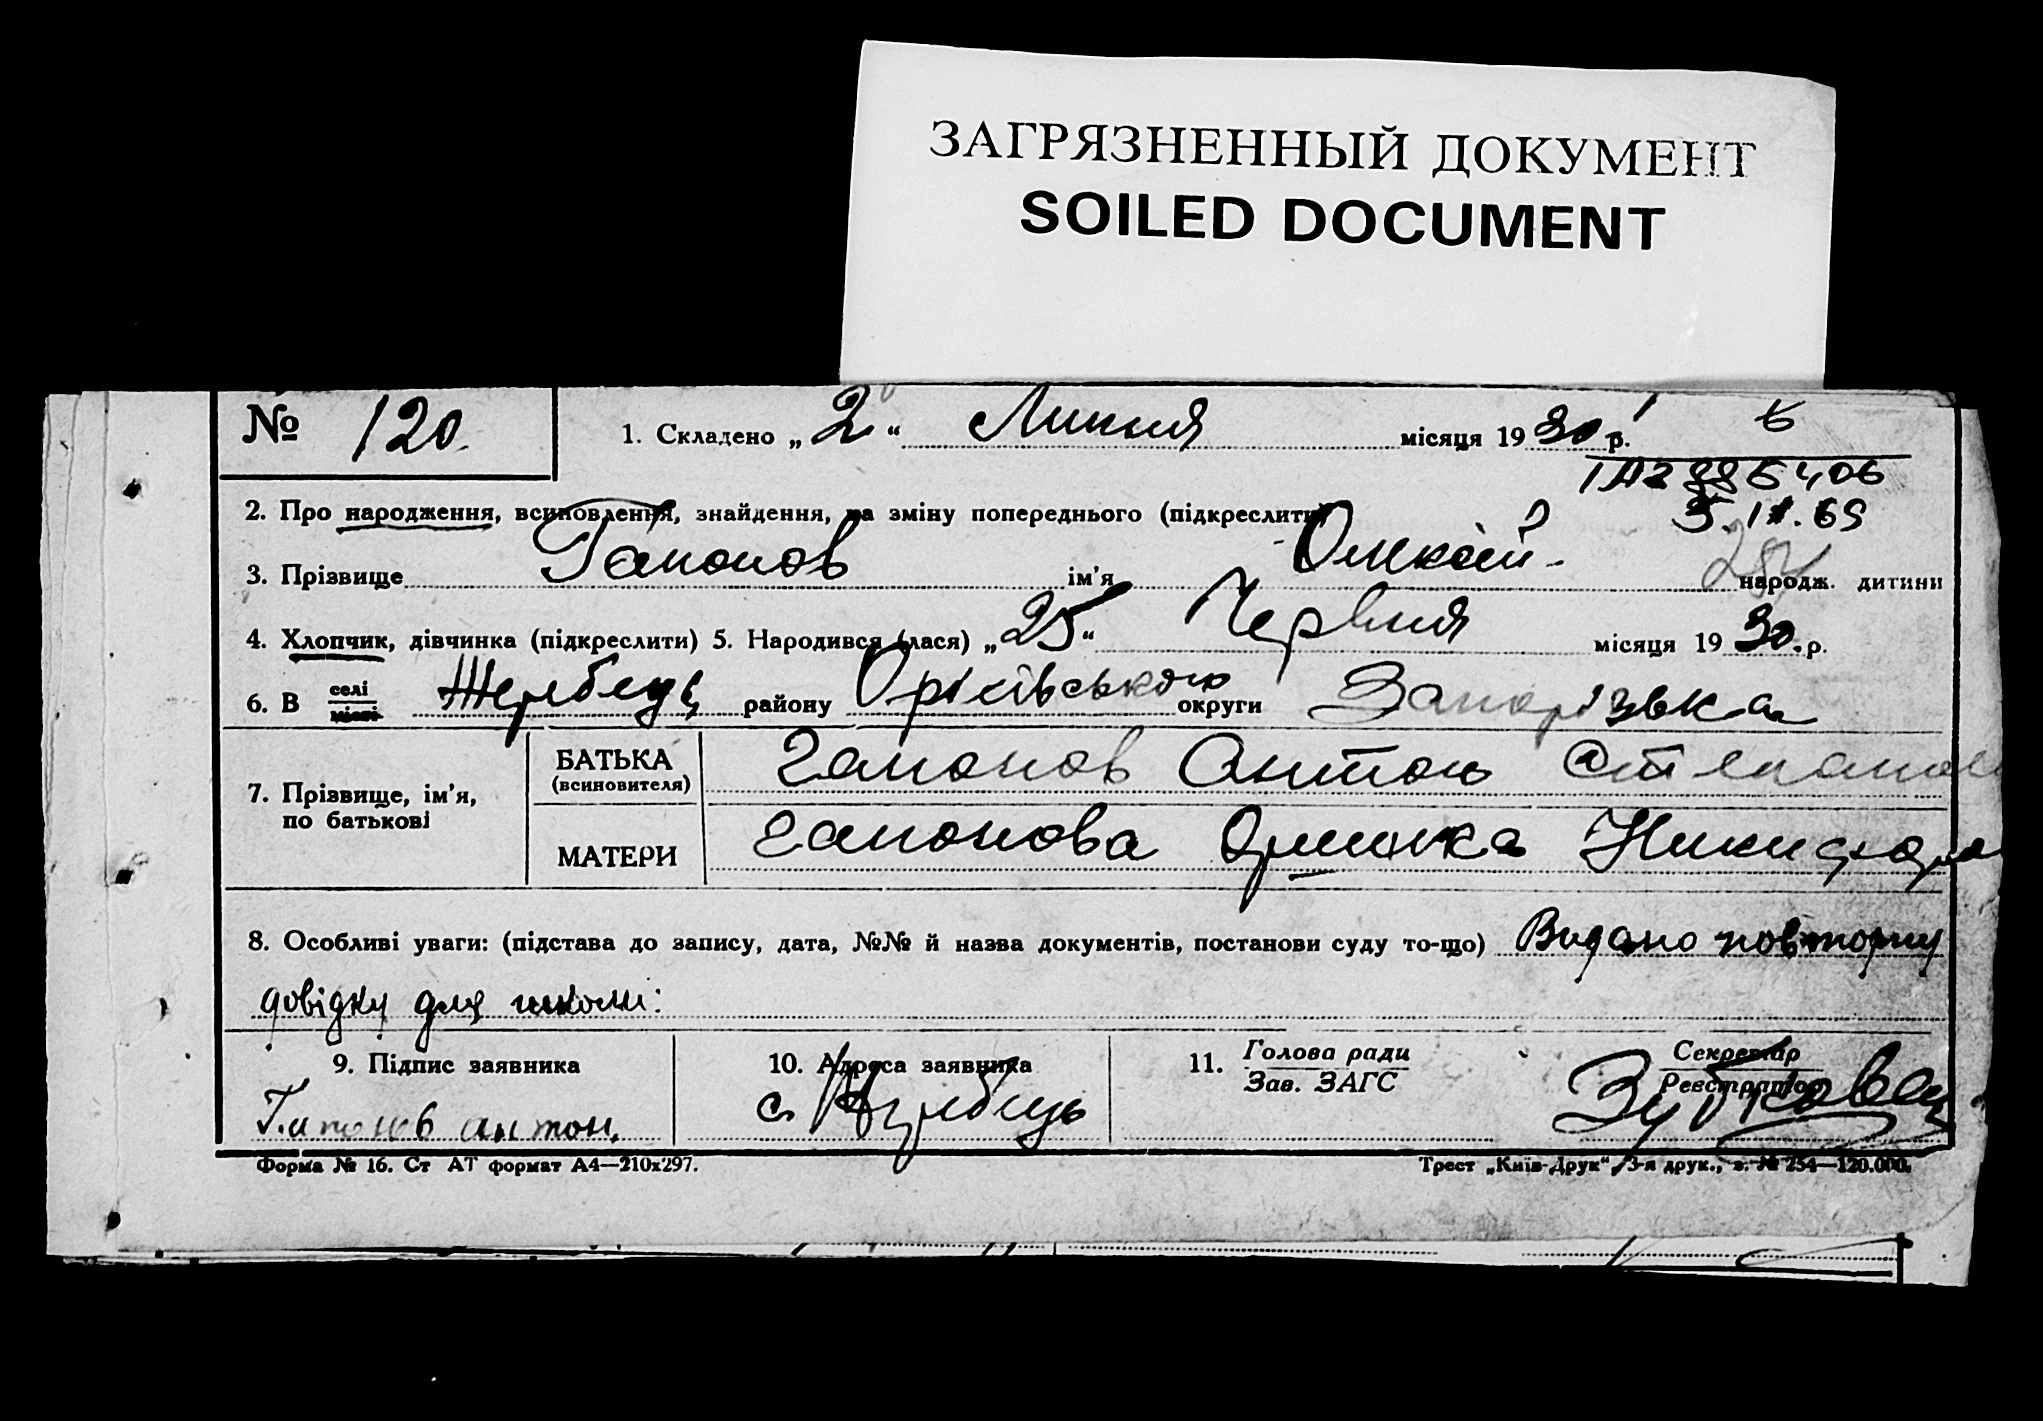 ЗАГРЯЗНЕННЫЙ ДОКУМЕНТ
SOILED DOCUMENT
№ 120.
1. Складено „2“ Липня місяця 1930 р.
5.
2. Про народження, всиновлення, знайдення, за зміну попереднього (підкреслити)
3. Прізвище Гапонов ім'я народж. дитини
4. Хлопчик, дівчинка (підкреслити) 5. Народився (лася) „25“ Червня місяця 1930. р.
6. В селі місті Жеребець району Оріхівського округи Запорізька
7. Прізвище, ім'я, по батькові
БАТЬКА (всиновителя) Гапонов Антон
МАТЕРИ Гапонова Оришка
8. Особливі уваги: (підстава до запису, дата, №№ й назва документів, постанови суду то-що) Видано повторну
довідку для школи:
9. Підпис заявника
Гапонов антон.
10. Адреса заявника
с. Жеребець
11. Голова ради
Зав. ЗАГС
Секретар
Реєстратор
Форма № 16. Ст АТ формат А4—210х297.
Трест „Київ-Друк“, 3-я друк., з. № 254—120.000.